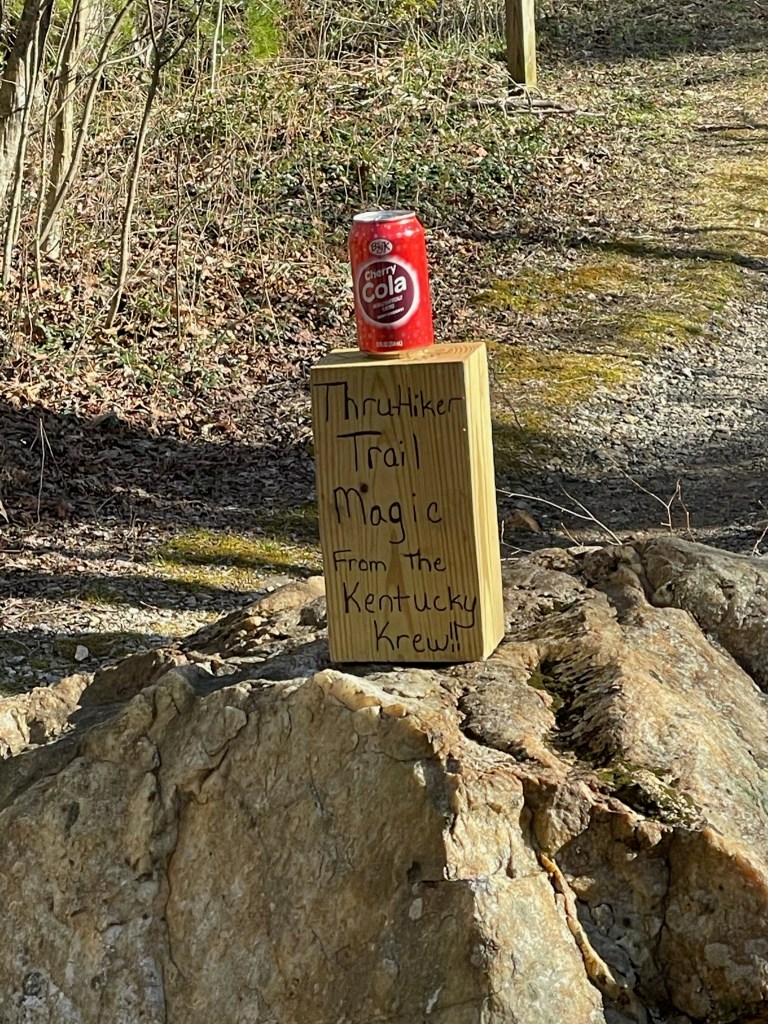 Cherry
Cola
Thru-Hiker
Trail
Magic
From The
Kentucky
Krew!!